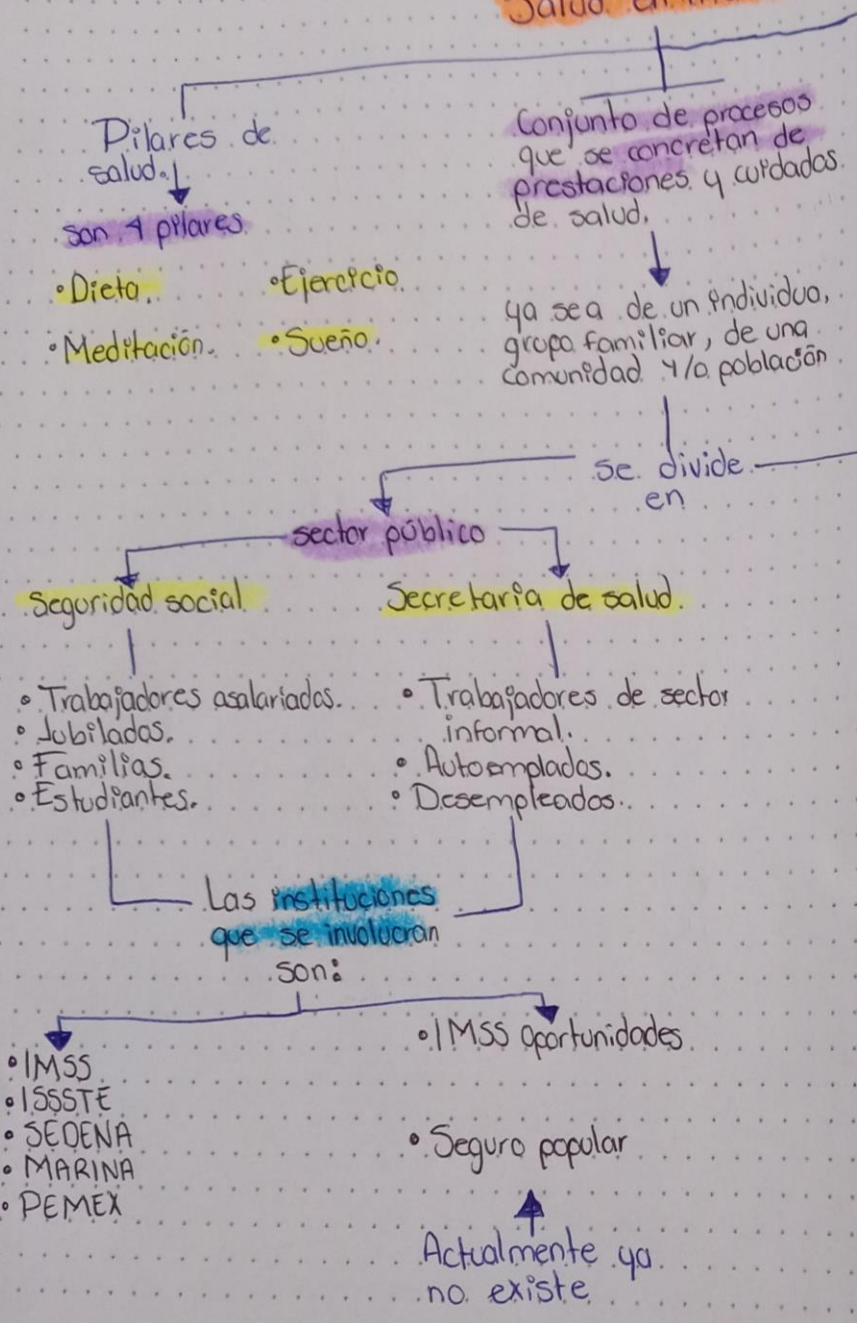 Salud en
Pilares de
salud.
son 4 pilares
• Dieta.
• Ejercicio
• Meditación.
• Sueño.
Conjunto de procesos
que se concretan de
prestaciones y cuidados
de salud.
ya sea de un individuo,
grupo familiar, de una
comunidad y/o población
se divide
en
sector público
Seguridad social
• Trabajadores asalariados.
• Jubilados.
• Familias.
• Estudiantes.
Secretaría de salud.
• Trabajadores de sector
informal.
• Autoemplados.
• Desempleados.
Las instituciones
que se involucran
son:
• IMSS
• ISSSTE
• SEDENA
• MARINA
• PEMEX
• IMSS oportunidades
• Seguro popular
Actualmente ya
no existe